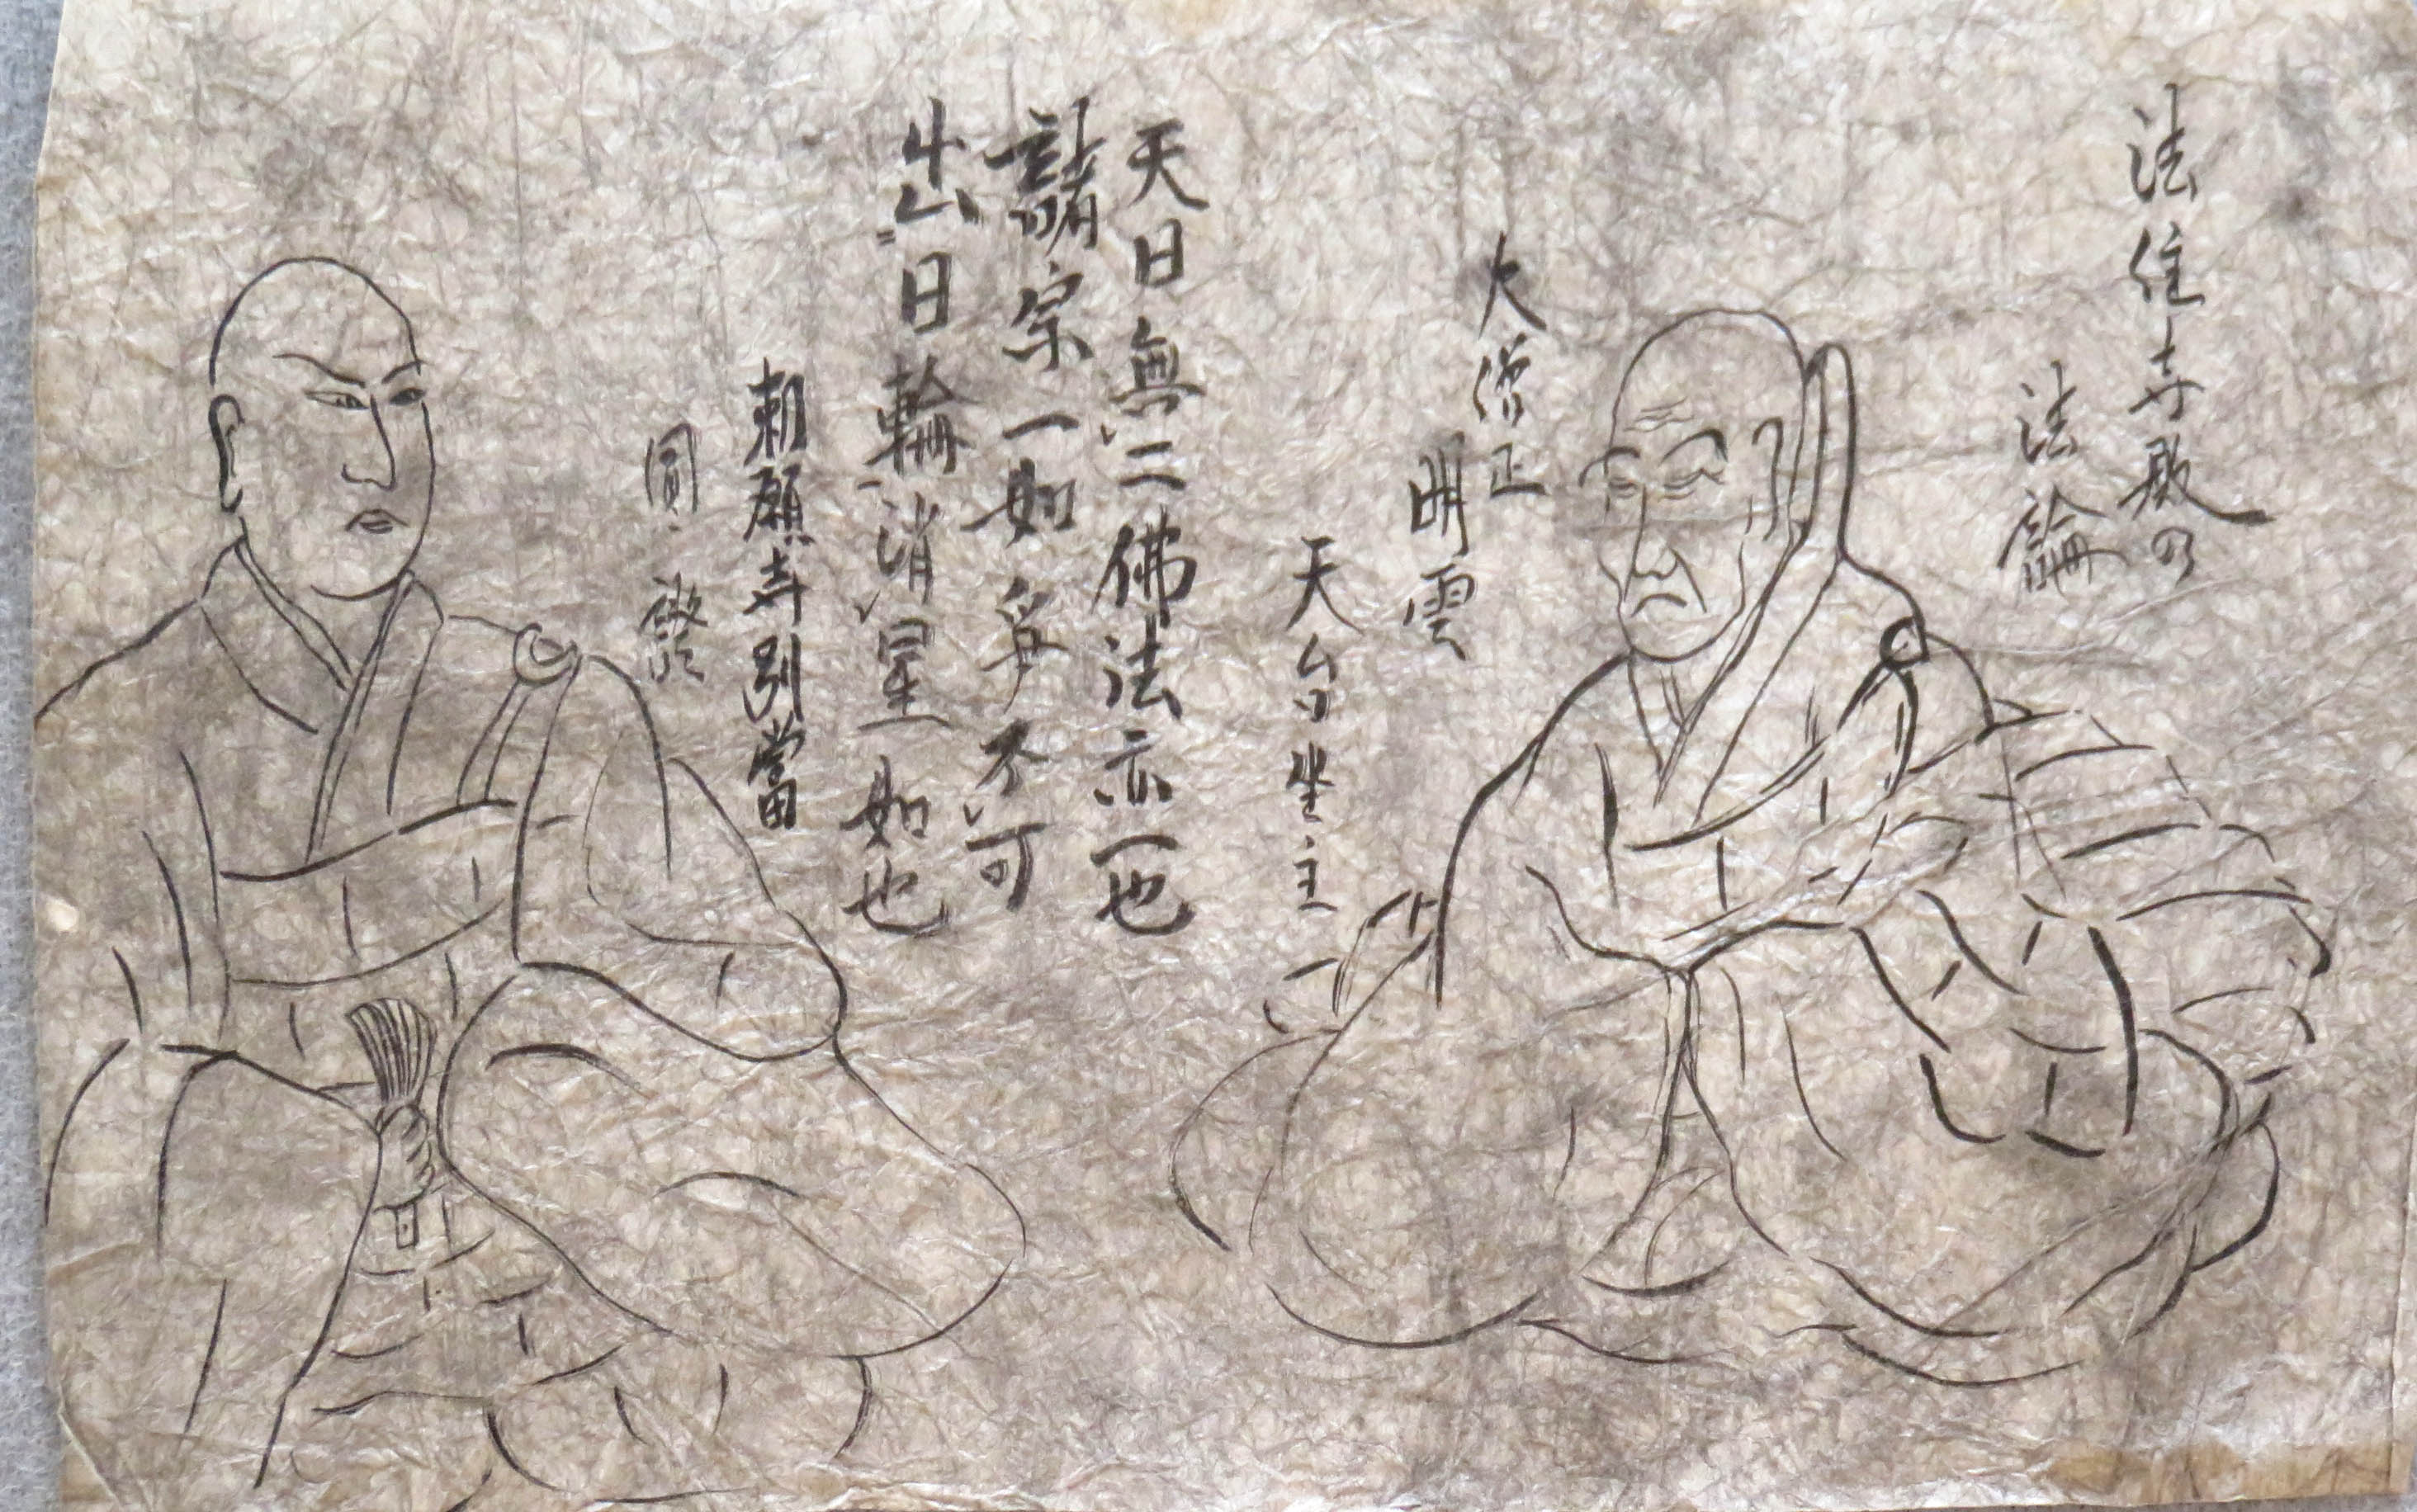 法住寺殿の
法論
大僧正
明雲
天台坐主
天日無二佛法亦一也
諸宗一如爭不可
出二日輪一消星如也
勅願寺別當
圓